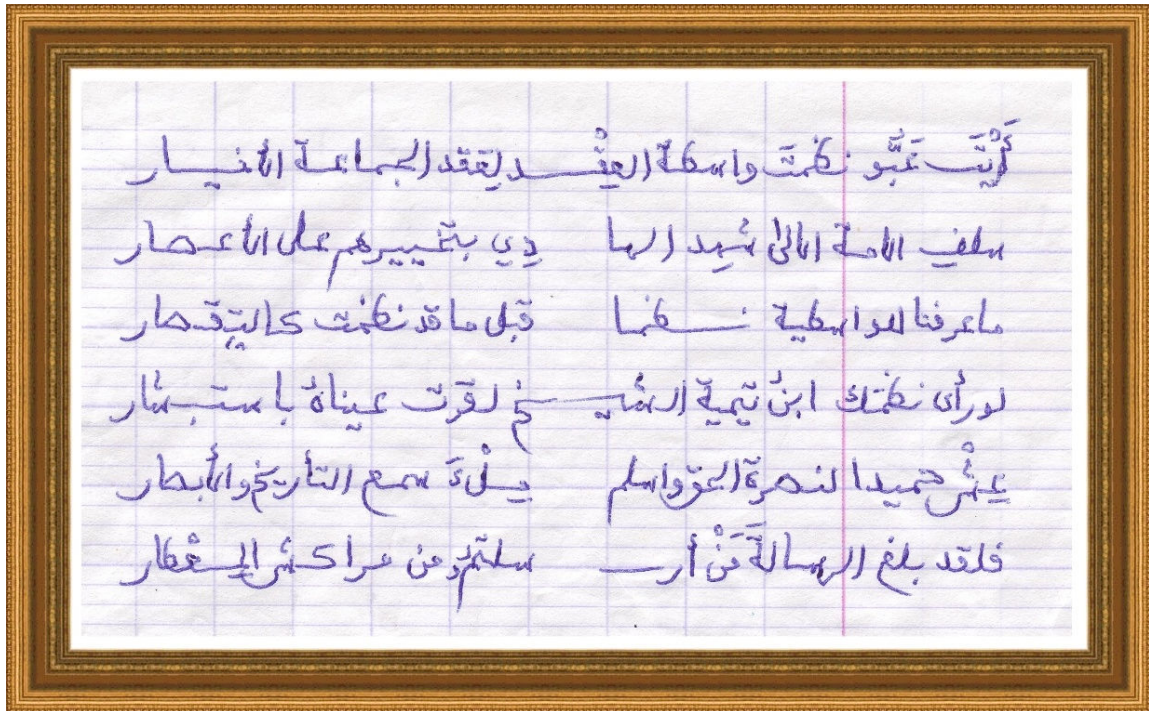 أَنْتَ عَبُّو نظمتَ واسطة العِقْــد لِعقد الجماعة الأخيــار
سلفِ الأمة الألى شهِد الهـا دِي بتخييرهم على الأعصار
ما عرفنا للواسطية نــظما قبل ما قد نظمت كالتِقصار
لو رأى نظمك ابنُ تيمية الشيــخ لقرت عيناهُ باستبشار
عِشْ حميدا لنصرة الحق واسلم مِــلْءَ سمع التأريخ والأبصار
فلقد بلغ الرسالةَ مَنْ أرــ سلتمُ من مراكش المِــعْطار